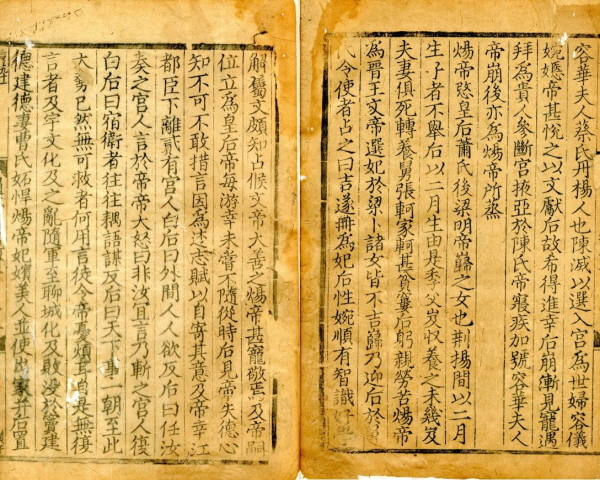 容華夫人蔡氏丹揚人也陳滅以選入宮爲世婦容儀
婉嫕帝甚悅之以文獻后故希得進幸后崩漸見寵遇
拜爲貴人參斷宮掖亞於陳氏帝寢疾加號容華夫人
帝崩後亦爲煬帝所蒸
煬帝愍皇后蕭氏後梁明帝巋之女也荆揚間以二月
生子者不舉后以二月生由是季父岌収養之未幾岌
夫妻俱死轉養舅張軻家軻甚貧窶后躬親勞苦煬帝
爲晋王文帝選妃於梁卜諸女皆不吉巋乃迎后於
氏令使者占之曰吉遂冊爲妃后性婉順有智識好學
解屬文頗知占候文帝大善之煬帝甚寵敬焉及帝嗣
位立爲皇后帝毎游幸未嘗不隨從時后見帝失德心
知不可不敢措言因爲述志賦以自寄其意及帝幸江
都臣下離貳有宮人白后曰外間人人欲反后曰任汝
奏之宮人言於帝帝大怒曰非汝宜言乃斬之宮人復
白后曰宿衛者往往耦語謀反后曰天下事一朝至此
大勢已然無可救者何用言徒令帝憂煩耳自是無復
言者及宇文化及之亂隨軍至聊城化及敗没於竇建
德建德妻曹氏妬悍煬帝妃嬪美人並使出家并后置